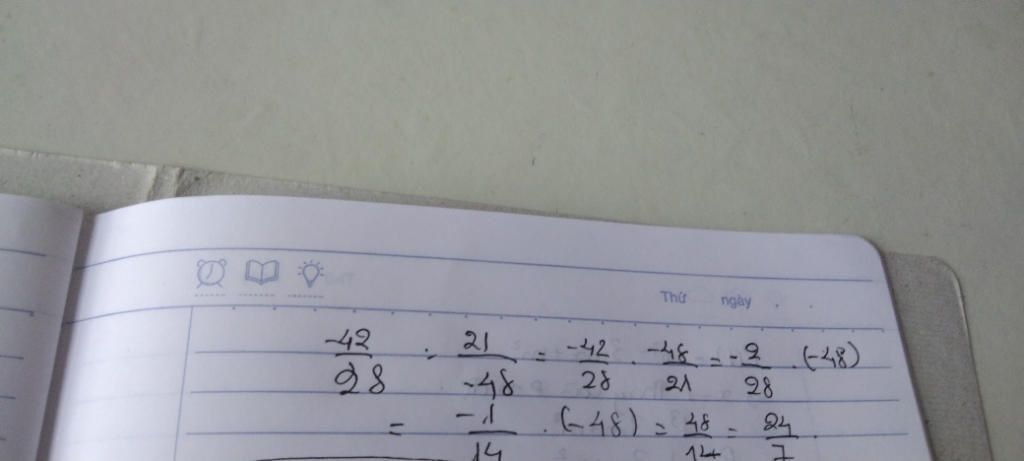 Thứ ngày
-42/28 : 21/-48 = -42/28 . -48/21 = -2/28 . (-48)
= -1/14 . (-48) = 48/14 = 24/7